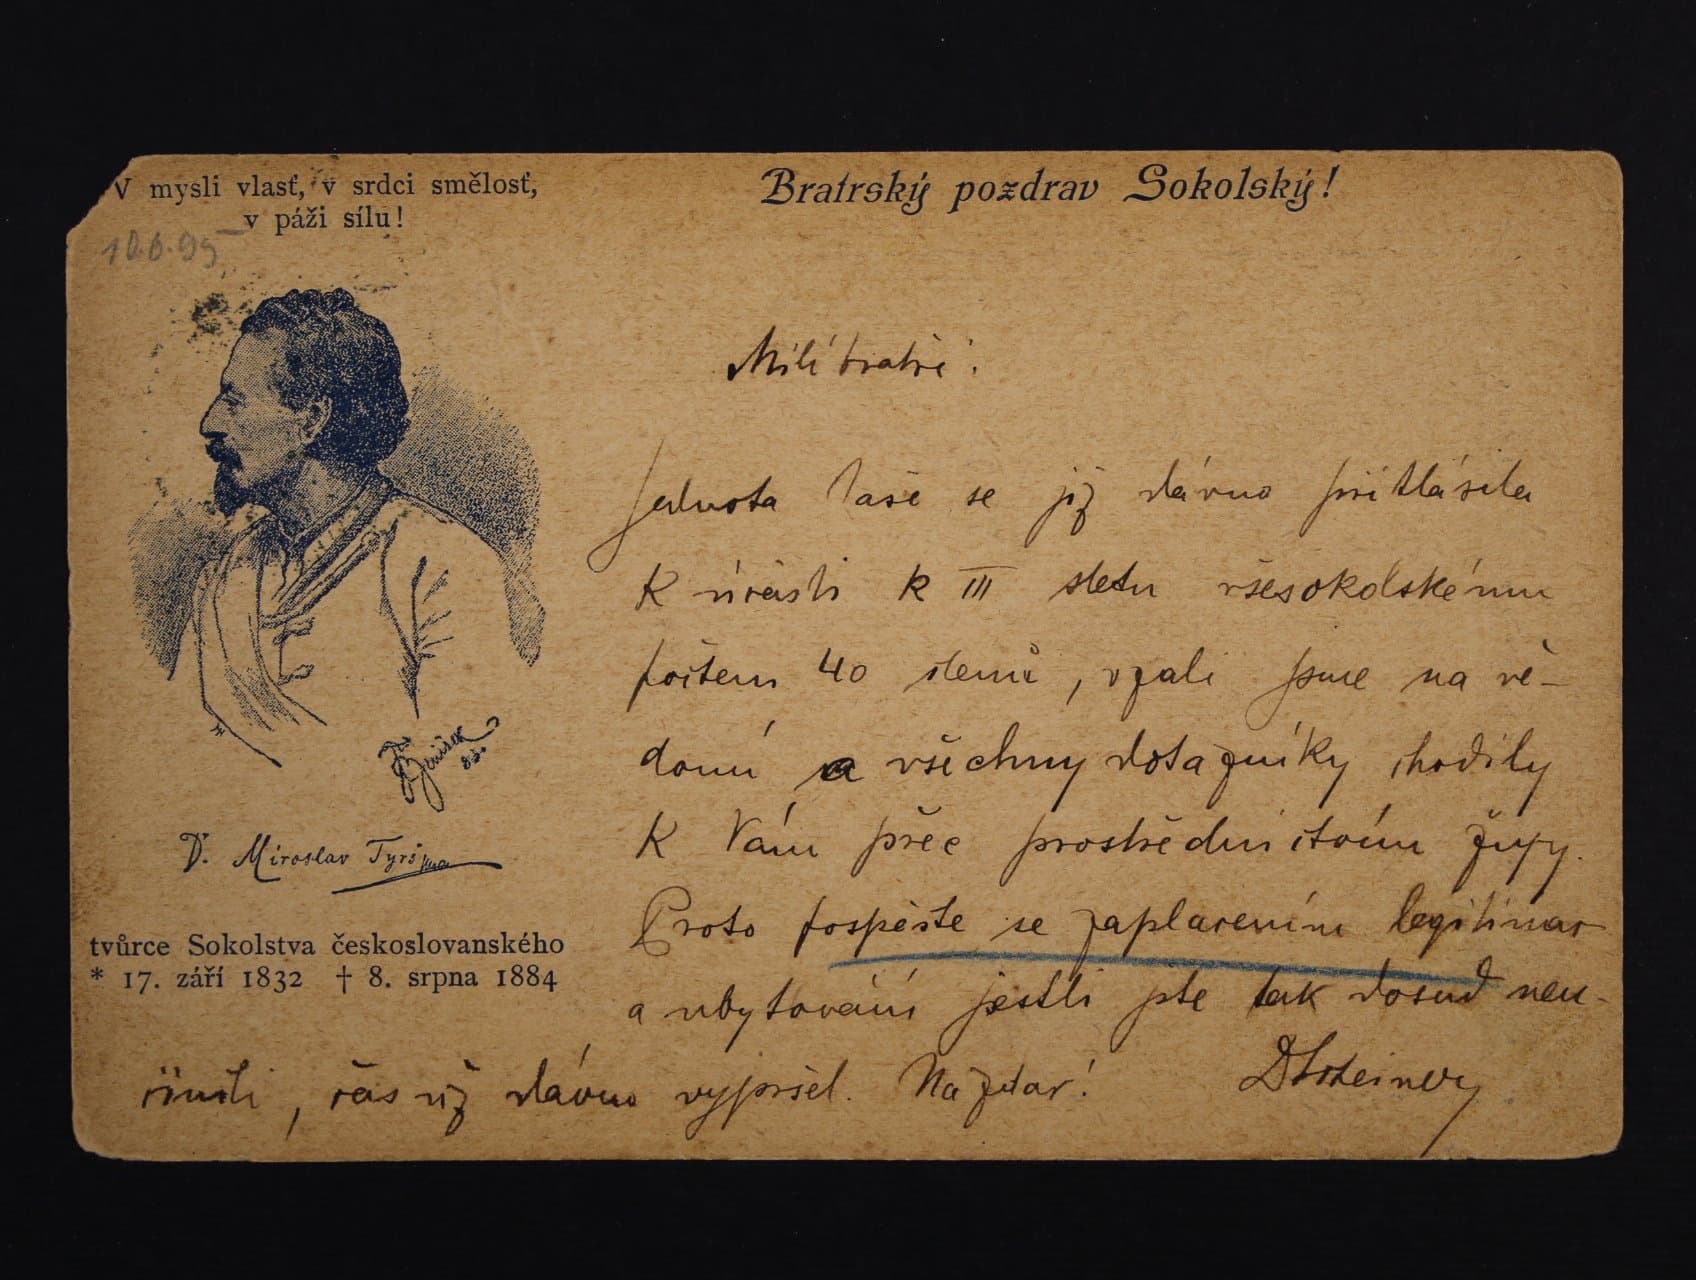 V mysli vlasť, v srdci smělosť,
v páži sílu!
10.6.95
Bratrský pozdrav Sokolský!
Milí bratři!
Jednota Vaše se již dávno přihlásila
k účasti k III sletu všesokolskému
počtem 40 členů, vzali jsme na vě-
domí a všechny dotazníky chodily
k Vám přec prostřednictvím župy.
Proto pospěšte se zaplacením legitimac
a ubytování jestli jste tak dosud neu-
činili, čas už dávno vypršel. Na zdar!
Dr. Miroslav Tyrš
tvůrce Sokolstva českoslovanského
* 17. září 1832 † 8. srpna 1884